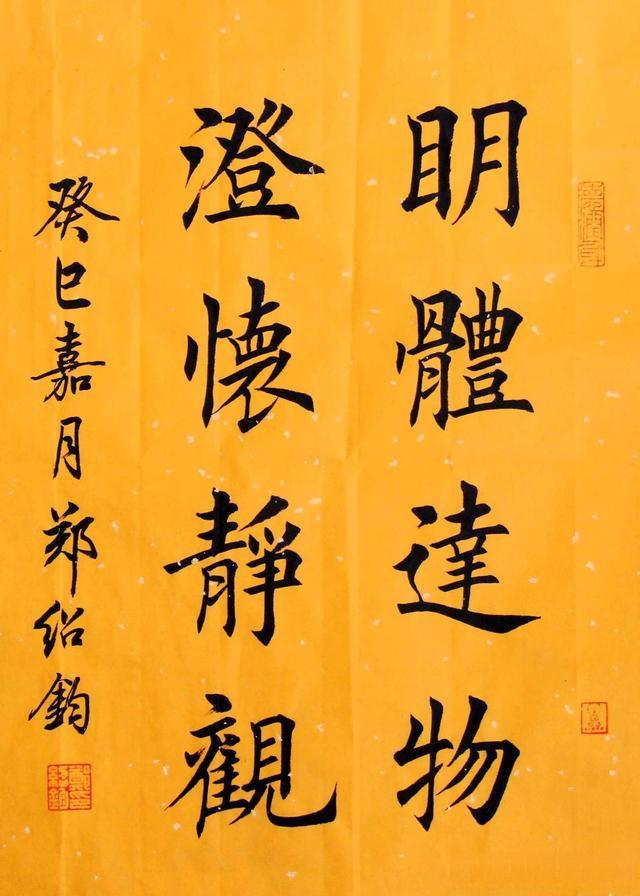 眀體達物
澄懷靜觀
癸巳嘉月郑绍鈞